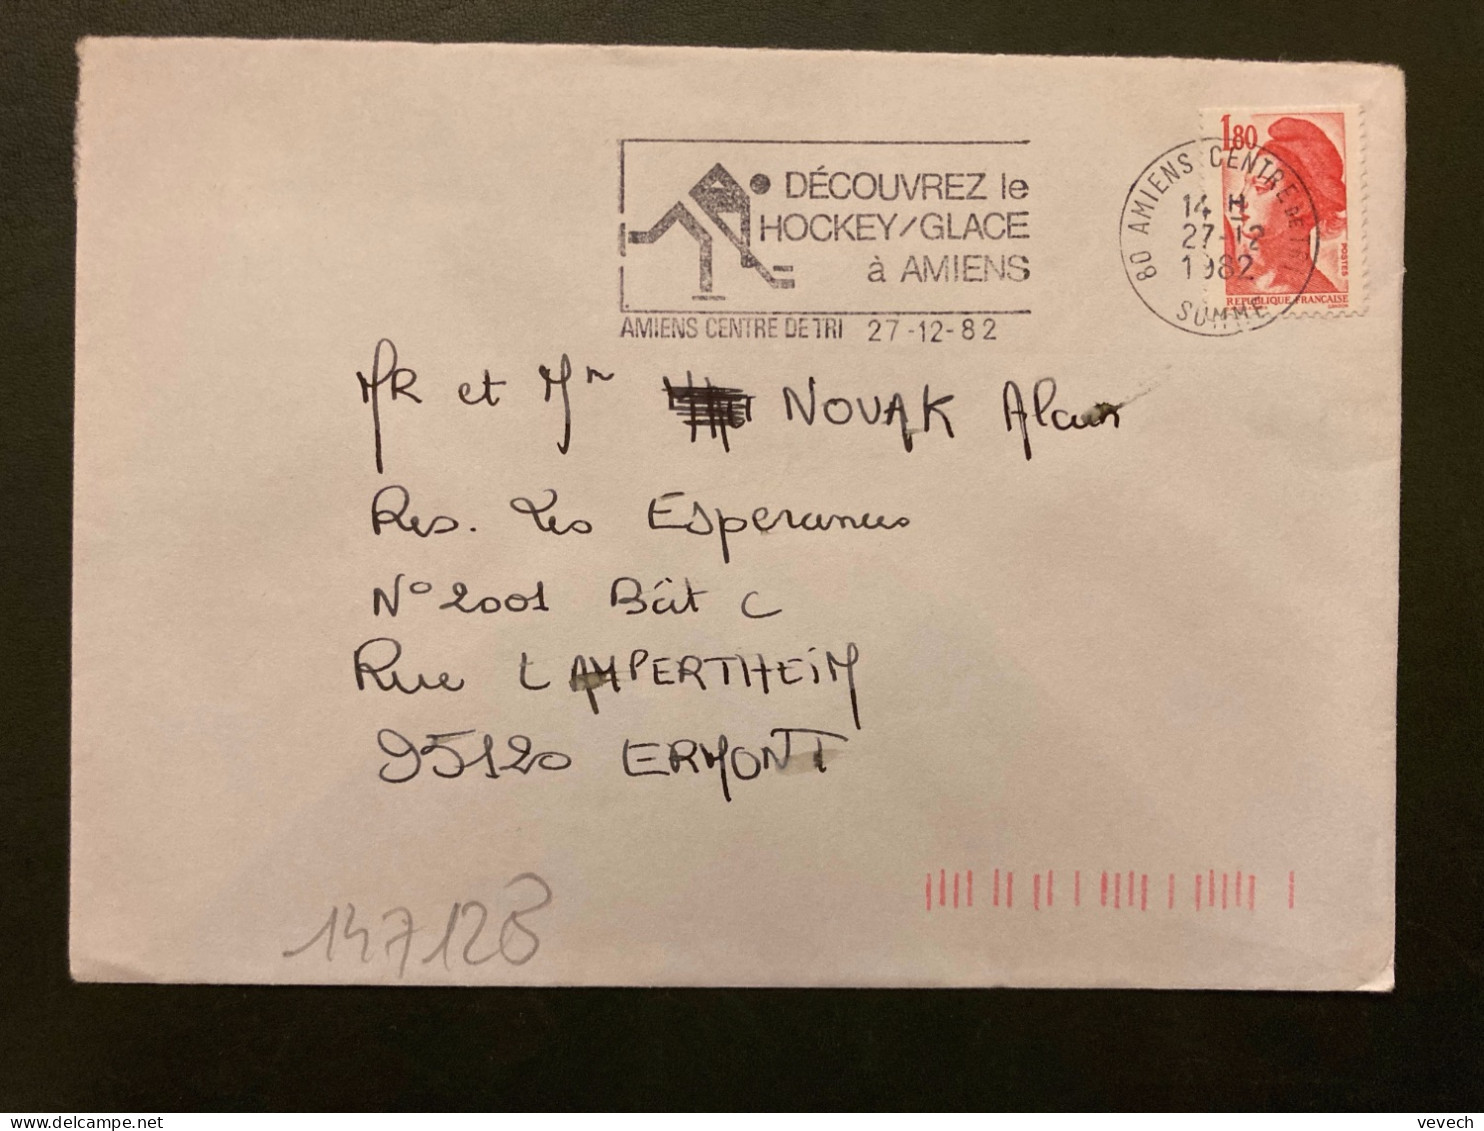 DÉCOUVREZ le
HOCKEY/GLACE
à AMIENS
AMIENS CENTRE DE TRI 27-12-82
80 AMIENS CENTRE DE TRI
14 H
27-12
1982
SOMME
1,80
POSTES
REPUBLIQUE FRANCAISE
MR et Mm NOVAK Alain
Res. Les Esperances
N° 2001 Bât C
Rue LAMPERTHEIM
95120 ERMONT
14712B
vevech